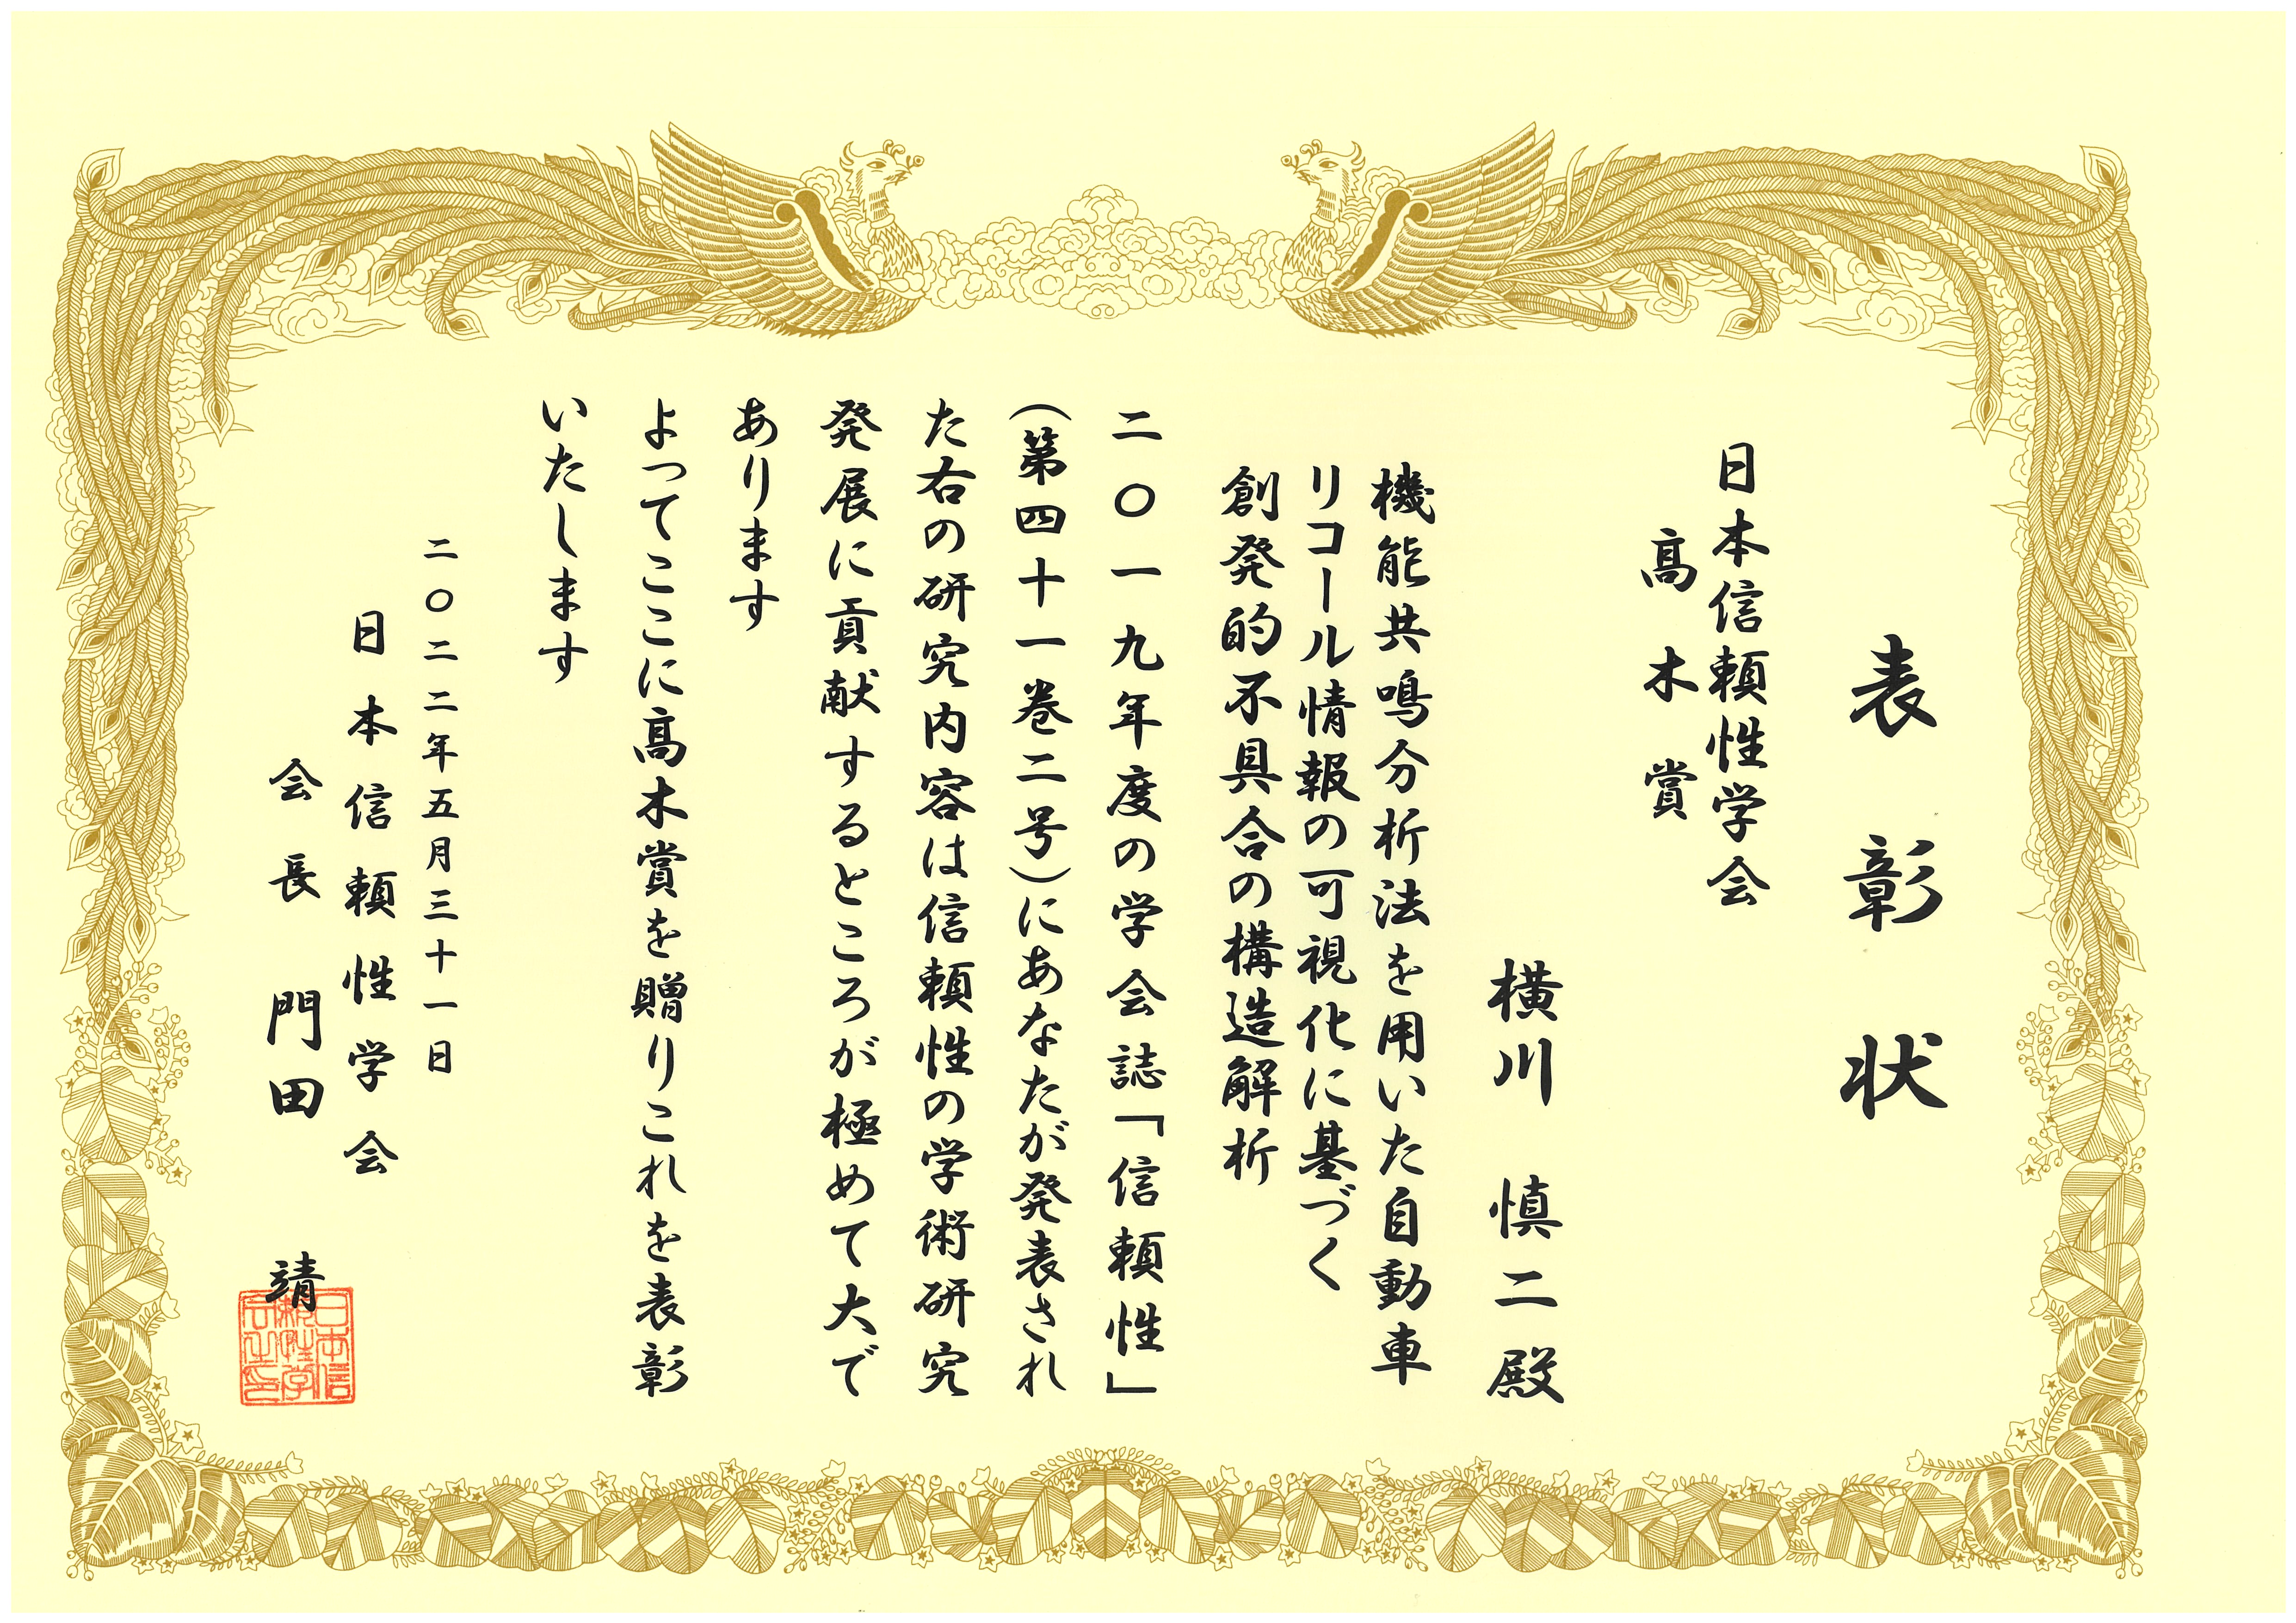 表彰状
日本信頼性学会
高木賞
横川 慎二殿
機能共鳴分析法を用いた自動車
リコール情報の可視化に基づく
創発的不具合の構造解析
二〇一九年度の学会誌「信頼性」
(第四十一巻二号)にあなたが発表され
た右の研究内容は信頼性の学術研究
発展に貢献するところが極めて大で
あります
よってここに髙木賞を贈りこれを表彰
いたします
二〇二二年五月三十一日
日本信頼性学会
会長 門田 靖
日本信
頼性学
会之印